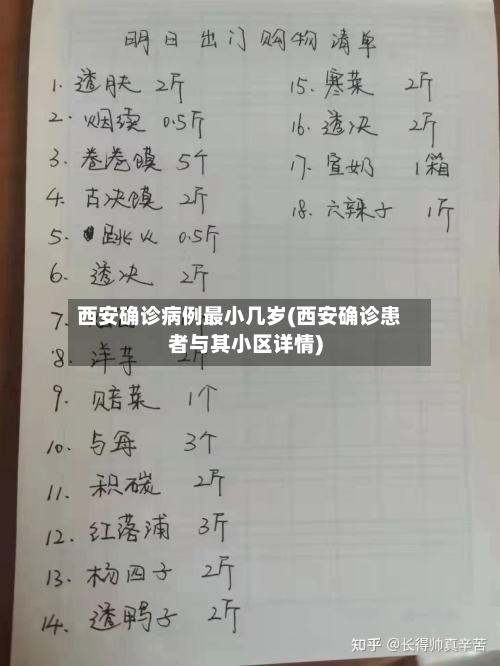 明日出门购物清单
1. 透肤 2斤
2. 烟续 0.5斤
3. 卷卷馍 5个
4. 古决馍 2斤
5. 跳从 0.5斤
6. 透决 2斤
7.
西安确诊病例最小几岁(西安确诊患
者与其小区详情)
8. 洋芋 2斤
9. 赔菜 1个
10. 与每 3个
11. 积碳 2斤
12. 红落浦 3斤
13. 杨四子 2斤
14. 透鸭子 2斤
15. 寒菜 2斤
16. 透决 2斤
17. 宣奶 1箱
18. 六辣子 1斤
知乎 @长得帅真辛苦